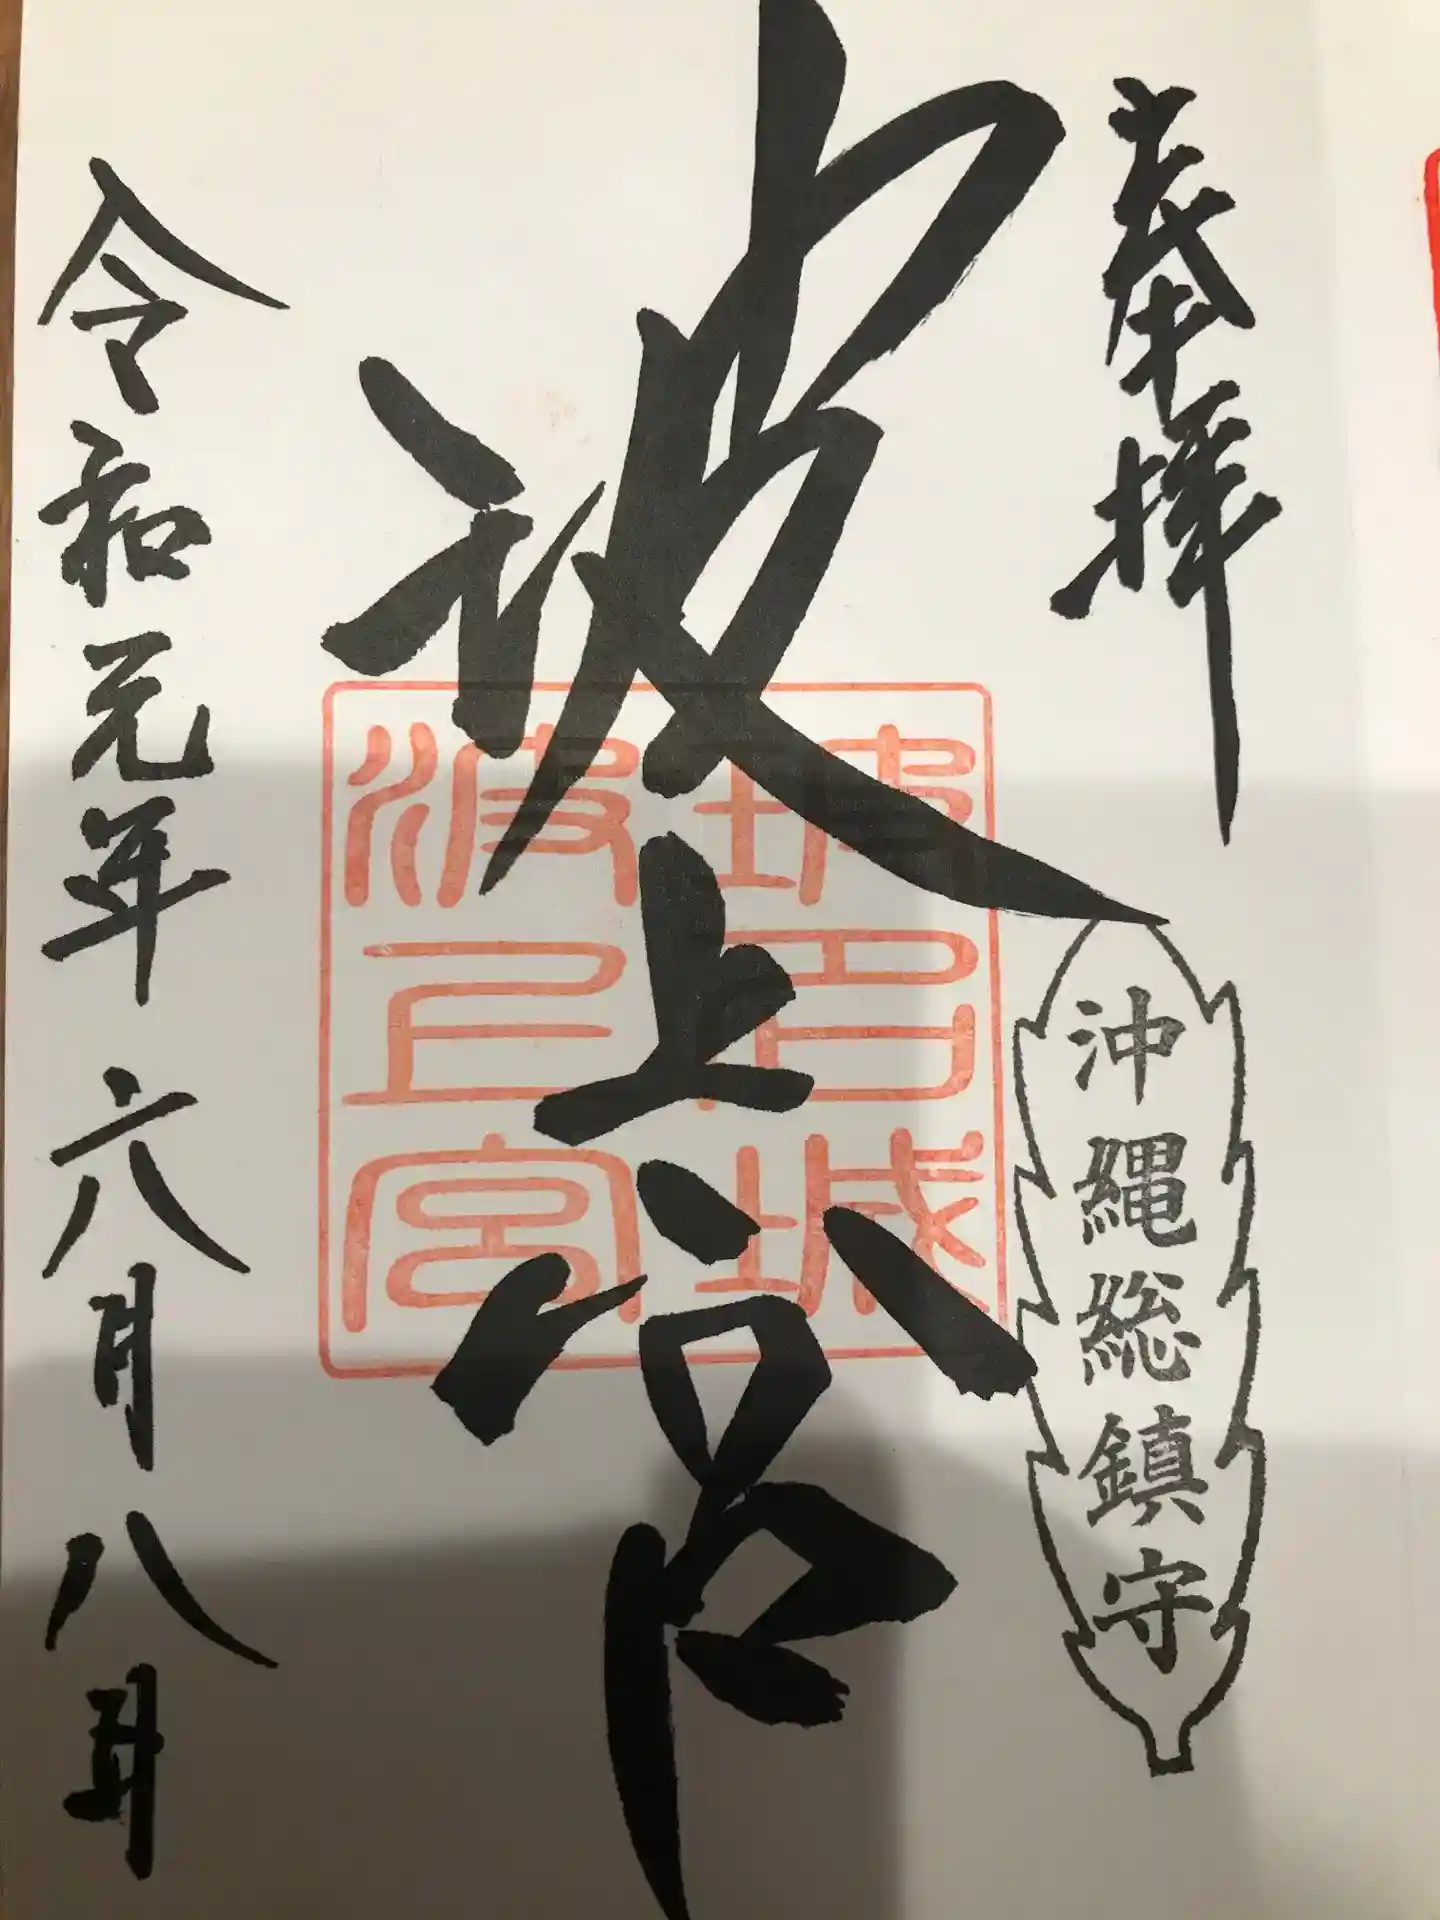 奉拝
沖縄総鎮守
波上宮
琉球城
波上宮
令和元年 六月八日